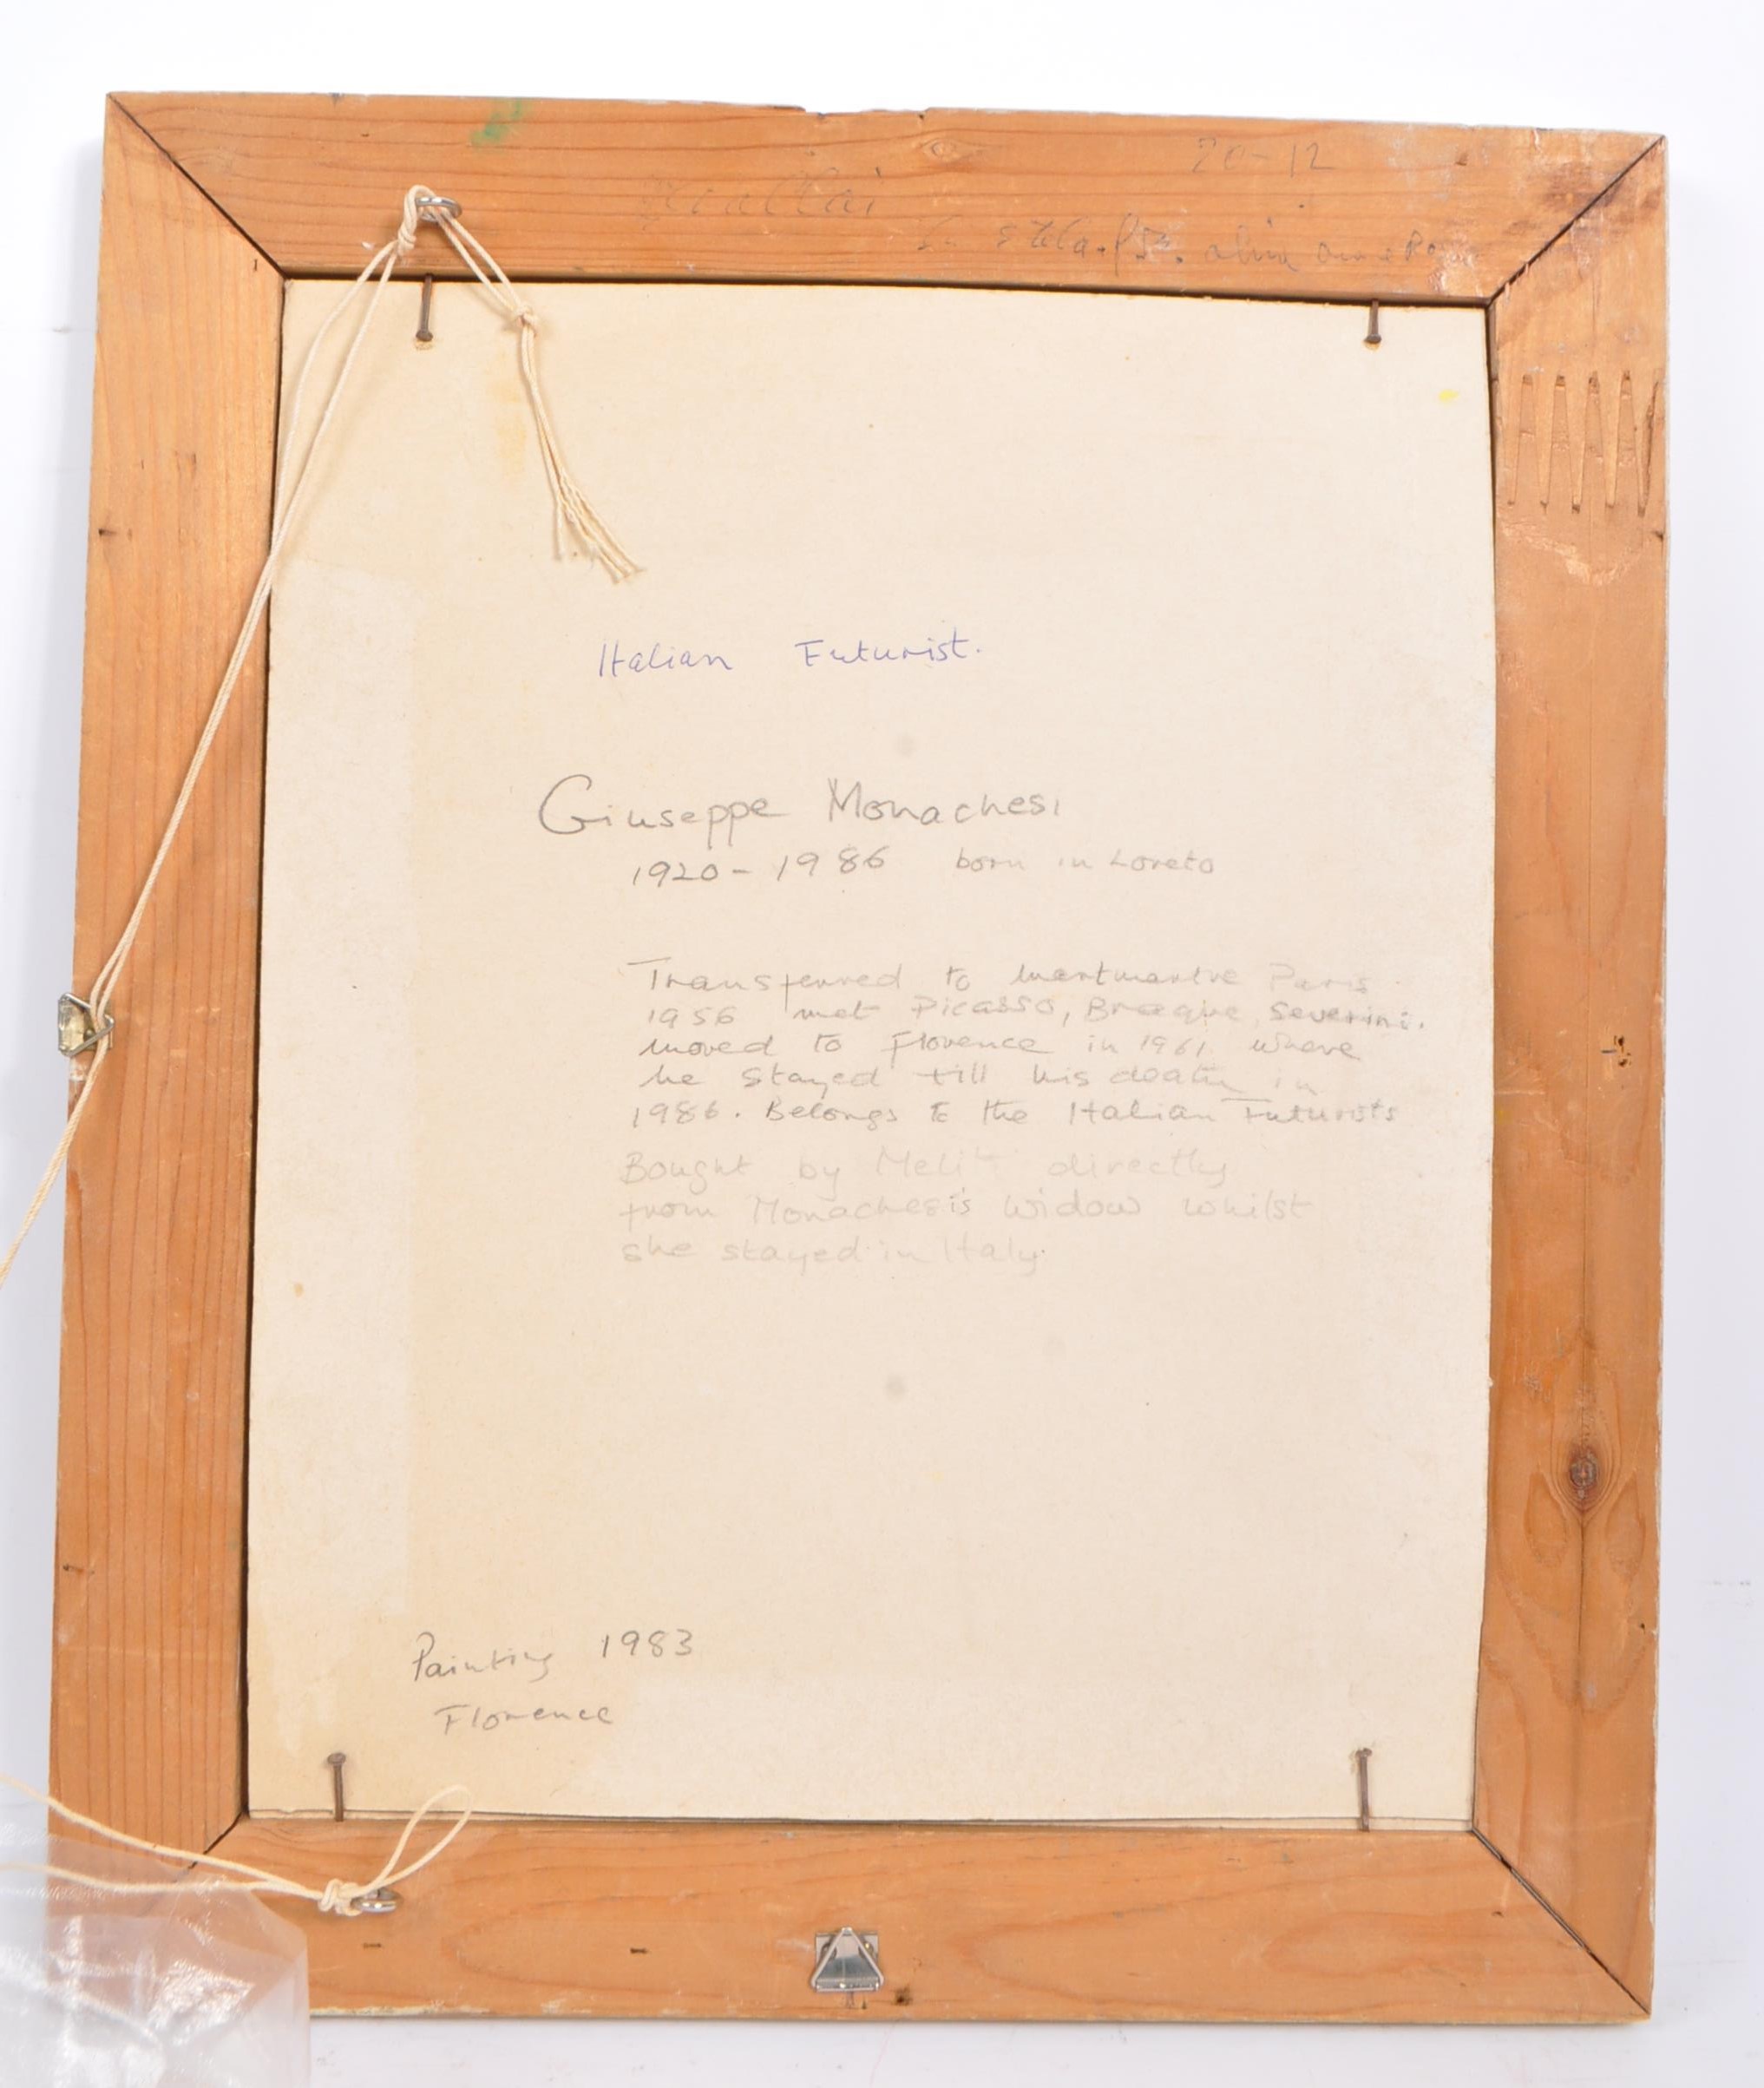 20-12
Italian Futurist.
Giuseppe Monachesi
1920 - 1986 born in Loreto
Transferred to Montmartre Paris
1956 met Picasso, Braque, Severini.
moved to Florence in 1961 where
he stayed till his death in
1986. Belongs to the Italian Futurists
Bought by directly
from Monachesi's widow whilst
she stayed in Italy.
Painting 1983
Florence